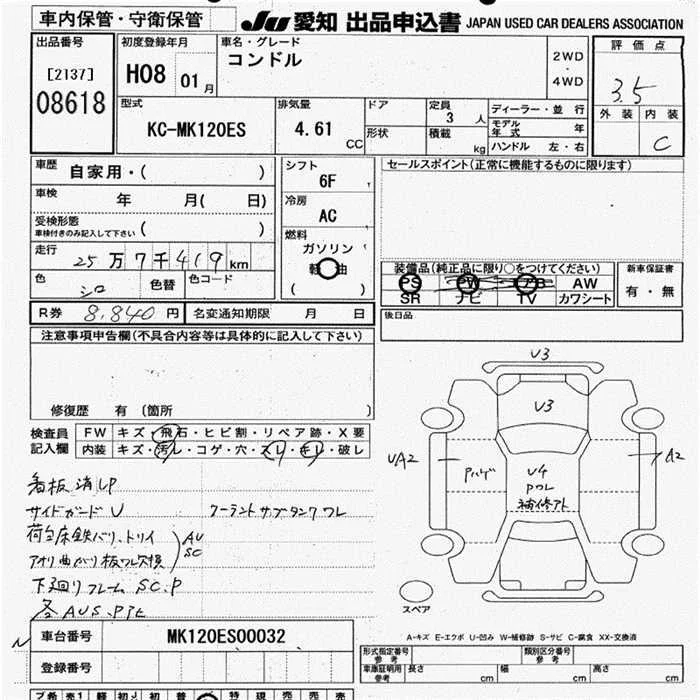 車内保管・守衛保管
JU 愛知 出品申込書 JAPAN USED CAR DEALERS ASSOCIATION
出品番号
[2137]
08618
初度登録年月
H08 01月
車名・グレード
コンドル
2WD
・
4WD
評価点
3.5
外装 内装
C
型式
KC-MK120ES
排気量
4.61 CC
ドア
形状
定員
3 人
積載 kg
ディーラー・並行
モデル年式 年
ハンドル 左・右
車歴 自家用・( )
車検 年 月( 日)
受検形態
車検付きのみ記入して下さい ( )
走行 25万7千419km
色 シロ 色替 色コード
シフト
6F
冷房
AC
燃料
ガソリン
軽油
( )
セールスポイント(正常に機能するものに限ります)
装備品(純正品に限り○をつけてください)
PS PW AB AW
SR ナビ TV カワシート
新車保証書
有・無
後日品
R券 8,840円 名変通知期限 月 日
注意事項申告欄(不具合内容等は具体的に記入して下さい)
修復歴 有 (箇所 )
検査員記入欄
FW キズ・飛石・ヒビ割・リペア跡・X要
内装 キズ・汚レ・コゲ・穴・スレ・キレ・破レ
看板済LP
サイドガードU クーラントサブタンクワレ
荷台床鉄バリ、トリイ
アオリ曲がり板ワレ欠損
AU
SC
下廻りフレームSC.P
U3
U3
UA2
Pハゲ
U4
Pワレ
補修アト
A2
スペア
A-キズ E-エクボ U-凹み W-補修跡 S-サビ C-腐食 XX-交換済
車台番号 MK120ES00032
登録番号
形式指定番号
参考
類別区分番号
参考
車庫証明用
参考
長さ cm 幅 cm 高さ cm